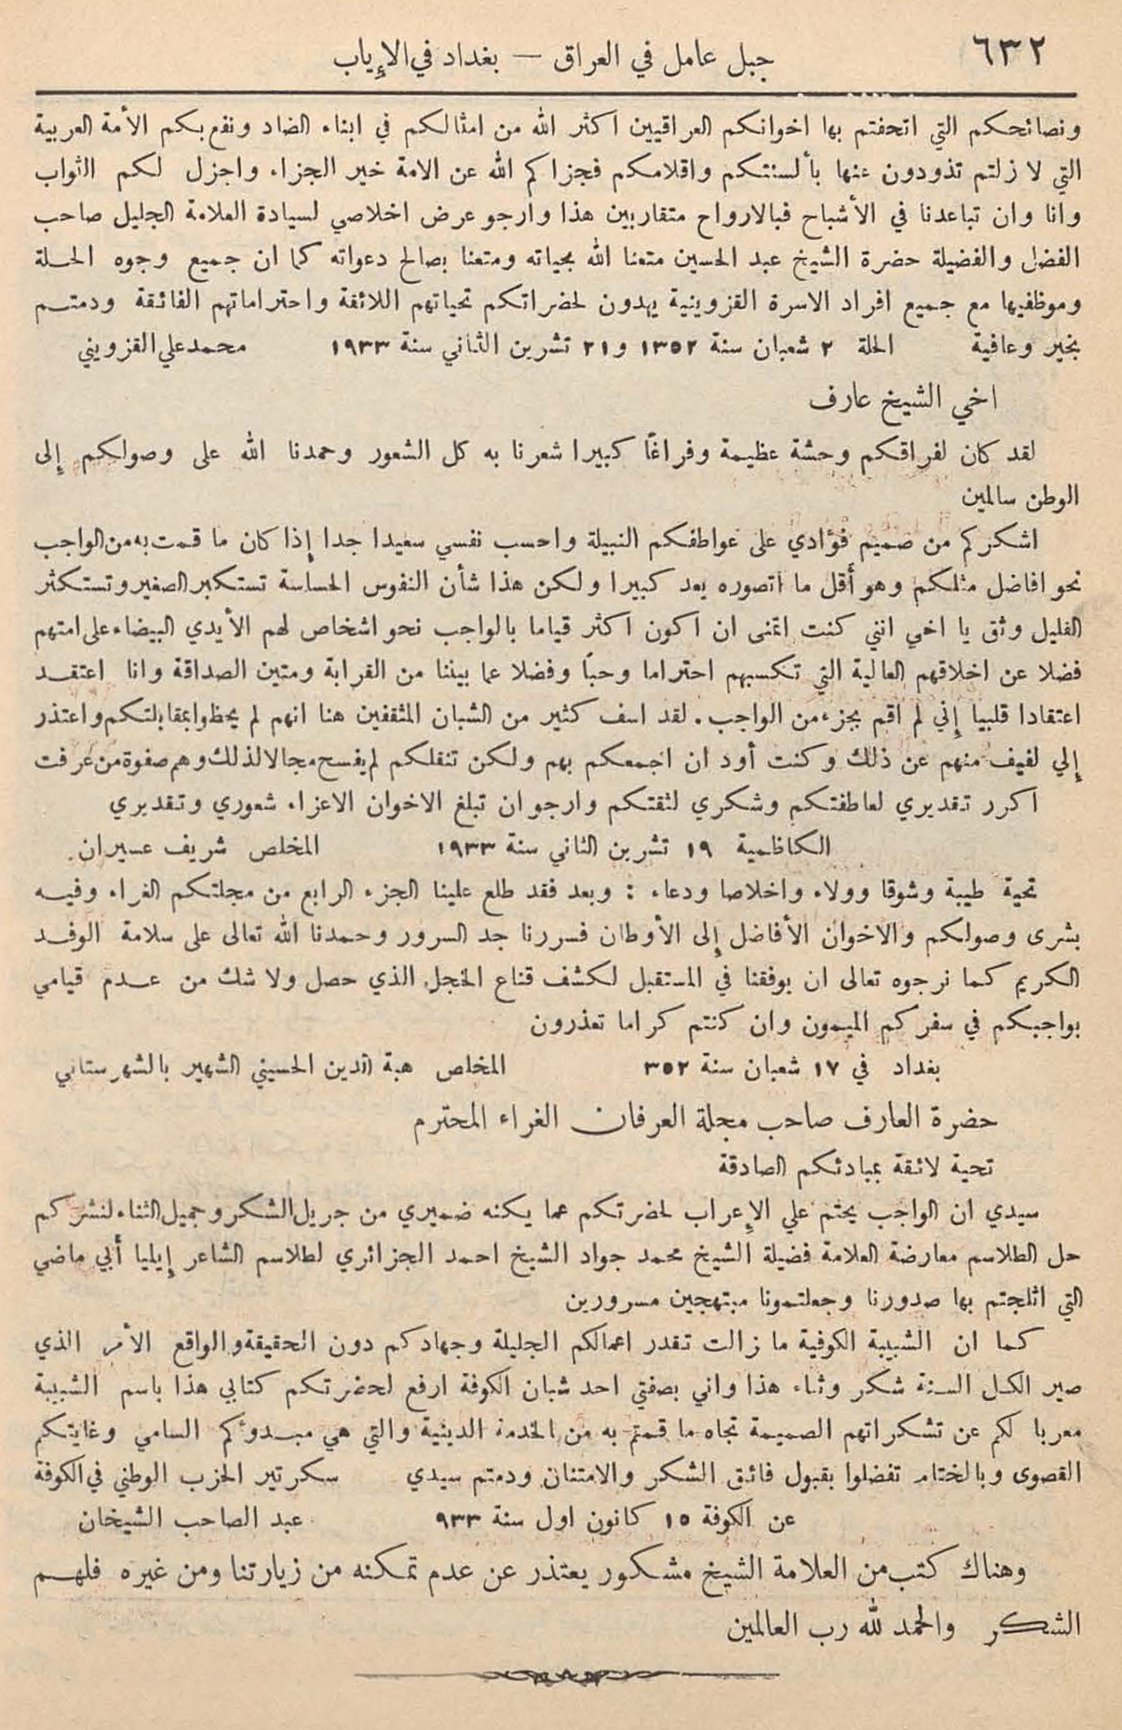 ٦٣٢
جبل عامل في العراق — بغداد في الإياب
ونصائحكم التي اتحفتم بها اخوانكم العراقيين اكثر الله من امثالكم في ابناء الضاد ونفع بكم الأمة العربية
التي لا زلتم تذودون عنها بألسنتكم واقلامكم فجزاكم الله عن الامة خير الجزاء واجزل لكم الثواب
وانا وان تباعدنا في الأشباح فبالارواح متقاربين هذا وارجو عرض اخلاصي لسيادة العلامة الجليل صاحب
الفضل والفضيلة حضرة الشيخ عبد الحسين متعنا الله بحياته ومتعنا بصالح دعواته كما ان جميع وجوه الحلة
وموظفيها مع جميع افراد الاسرة القزوينية يهدون لحضراتكم تحياتهم اللائقة واحتراماتهم الفائقة ودمتم
بخير وعافية الحلة ٢ شعبان سنة ١٣٥٢ و٢١ تشرين الثاني سنة ١٩٣٣ محمد علي القزويني
اخي الشيخ عارف
لقد كان لفراقكم وحشة عظيمة وفراغًا كبيرا شعرنا به كل الشعور وحمدنا الله على وصولكم إلى
الوطن سالمين
اشكركم من صميم فؤادي على عواطفكم النبيلة واحسب نفسي سعيدا جدا إذا كان ما قمت به من الواجب
نحو افاضل مثلكم وهو أقل ما اتصوره يعد كبيرا ولكن هذا شأن النفوس الحساسة تستكبر الصغير وتستكثر
القليل وثق يا اخي انني كنت اتمنى ان اكون اكثر قياما بالواجب نحو اشخاص لهم الأيدي البيضاء على امتهم
فضلا عن اخلاقهم العالية التي تكسبهم احتراما وحبًا وفضلا عما بيننا من القرابة ومتين الصداقة وانا اعتقد
اعتقادا قلبيا إني لم اقم بجزء من الواجب. لقد اسف كثير من الشبان المثقفين هنا انهم لم يحظوا بمقابلتكم واعتذر
إلي لفيف منهم عن ذلك وكنت أود ان اجمعكم بهم ولكن تنقلكم لم يفسح مجالا لذلك وهم صفوة من عرفت
اكرر تقديري لعاطفتكم وشكري لثقتكم وارجو ان تبلغ الاخوان الاعزاء شعوري وتقديري
الكاظمية ١٩ تشرين الثاني سنة ١٩٣٣ المخلص شريف عسيران.
تحية طيبة وشوقا وولاء واخلاصا ودعاء : وبعد فقد طلع علينا الجزء الرابع من مجلتكم الغراء وفيه
بشرى وصولكم والاخوان الأفاضل إلى الأوطان فسررنا جد السرور وحمدنا الله تعالى على سلامة الوفد
الكريم كما نرجوه تعالى ان يوفقنا في المستقبل لكشف قناع الخجل الذي حصل ولا شك من عدم قيامي
بواجبكم في سفركم الميمون وان كنتم كراما تعذرون
بغداد في ١٧ شعبان سنة ٣٥٢ المخلص هبة الدين الحسيني الشهير بالشهرستاني
حضرة العارف صاحب مجلة العرفان الغراء المحترم
تحية لائقة بمبادئكم الصادقة
سيدي ان الواجب يحتم علي الإعراب لحضرتكم عما يكنه ضميري من جريل الشكر وجميل الثناء لنشركم
حل الطلاسم معارضة العلامة فضيلة الشيخ محمد جواد الشيخ احمد الجزائري لطلاسم الشاعر إيليا أبي ماضي
التي اثلجتم بها صدورنا وجعلتمونا مبتهجين مسرورين
كما ان الشبيبة الكوفية ما زالت تقدر اعمالكم الجليلة وجهادكم دون الحقيقة والواقع الأمر الذي
صير الكل السنة شكر وثناء هذا واني بصفتي احد شبان الكوفة ارفع لحضرتكم كتابي هذا باسم الشبيبة
معربا لكم عن تشكراتهم الصميمة تجاه ما قمتم به من الخدمة الدينية والتي هي مبدؤكم السامي وغايتكم
القصوى وبالختام تفضلوا بقبول فائق الشكر والامتنان ودمتم سيدي سكرتير الحزب الوطني في الكوفة
عن الكوفة ١٥ كانون اول سنة ٩٣٣ عبد الصاحب الشيخان
وهناك كتب من العلامة الشيخ مشكور يعتذر عن عدم تمكنه من زيارتنا ومن غيره فلهم
الشكر والحمد لله رب العالمين